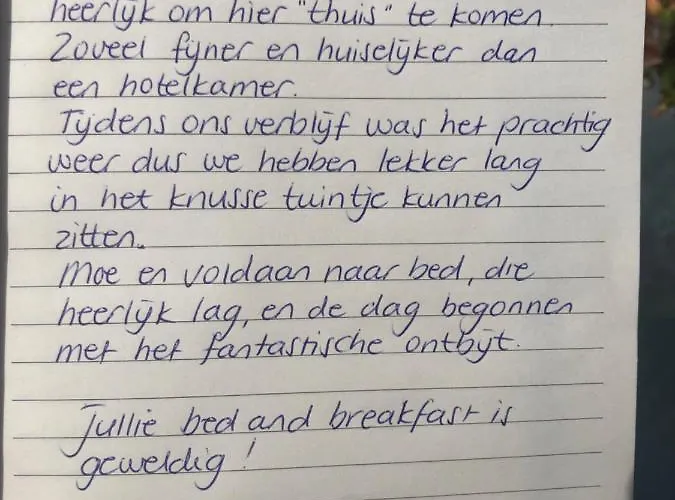 heerlijk om hier "thuis" te komen.
Zoveel fijner en huiselijker dan
een hotelkamer.
Tijdens ons verblijf was het prachtig
weer dus we hebben lekker lang
in het knusse tuintje kunnen
zitten.
Moe en voldaan naar bed, die
heerlijk lag, en de dag begonnen
met het fantastische ontbijt.
Jullie bed and breakfast is
geweldig!